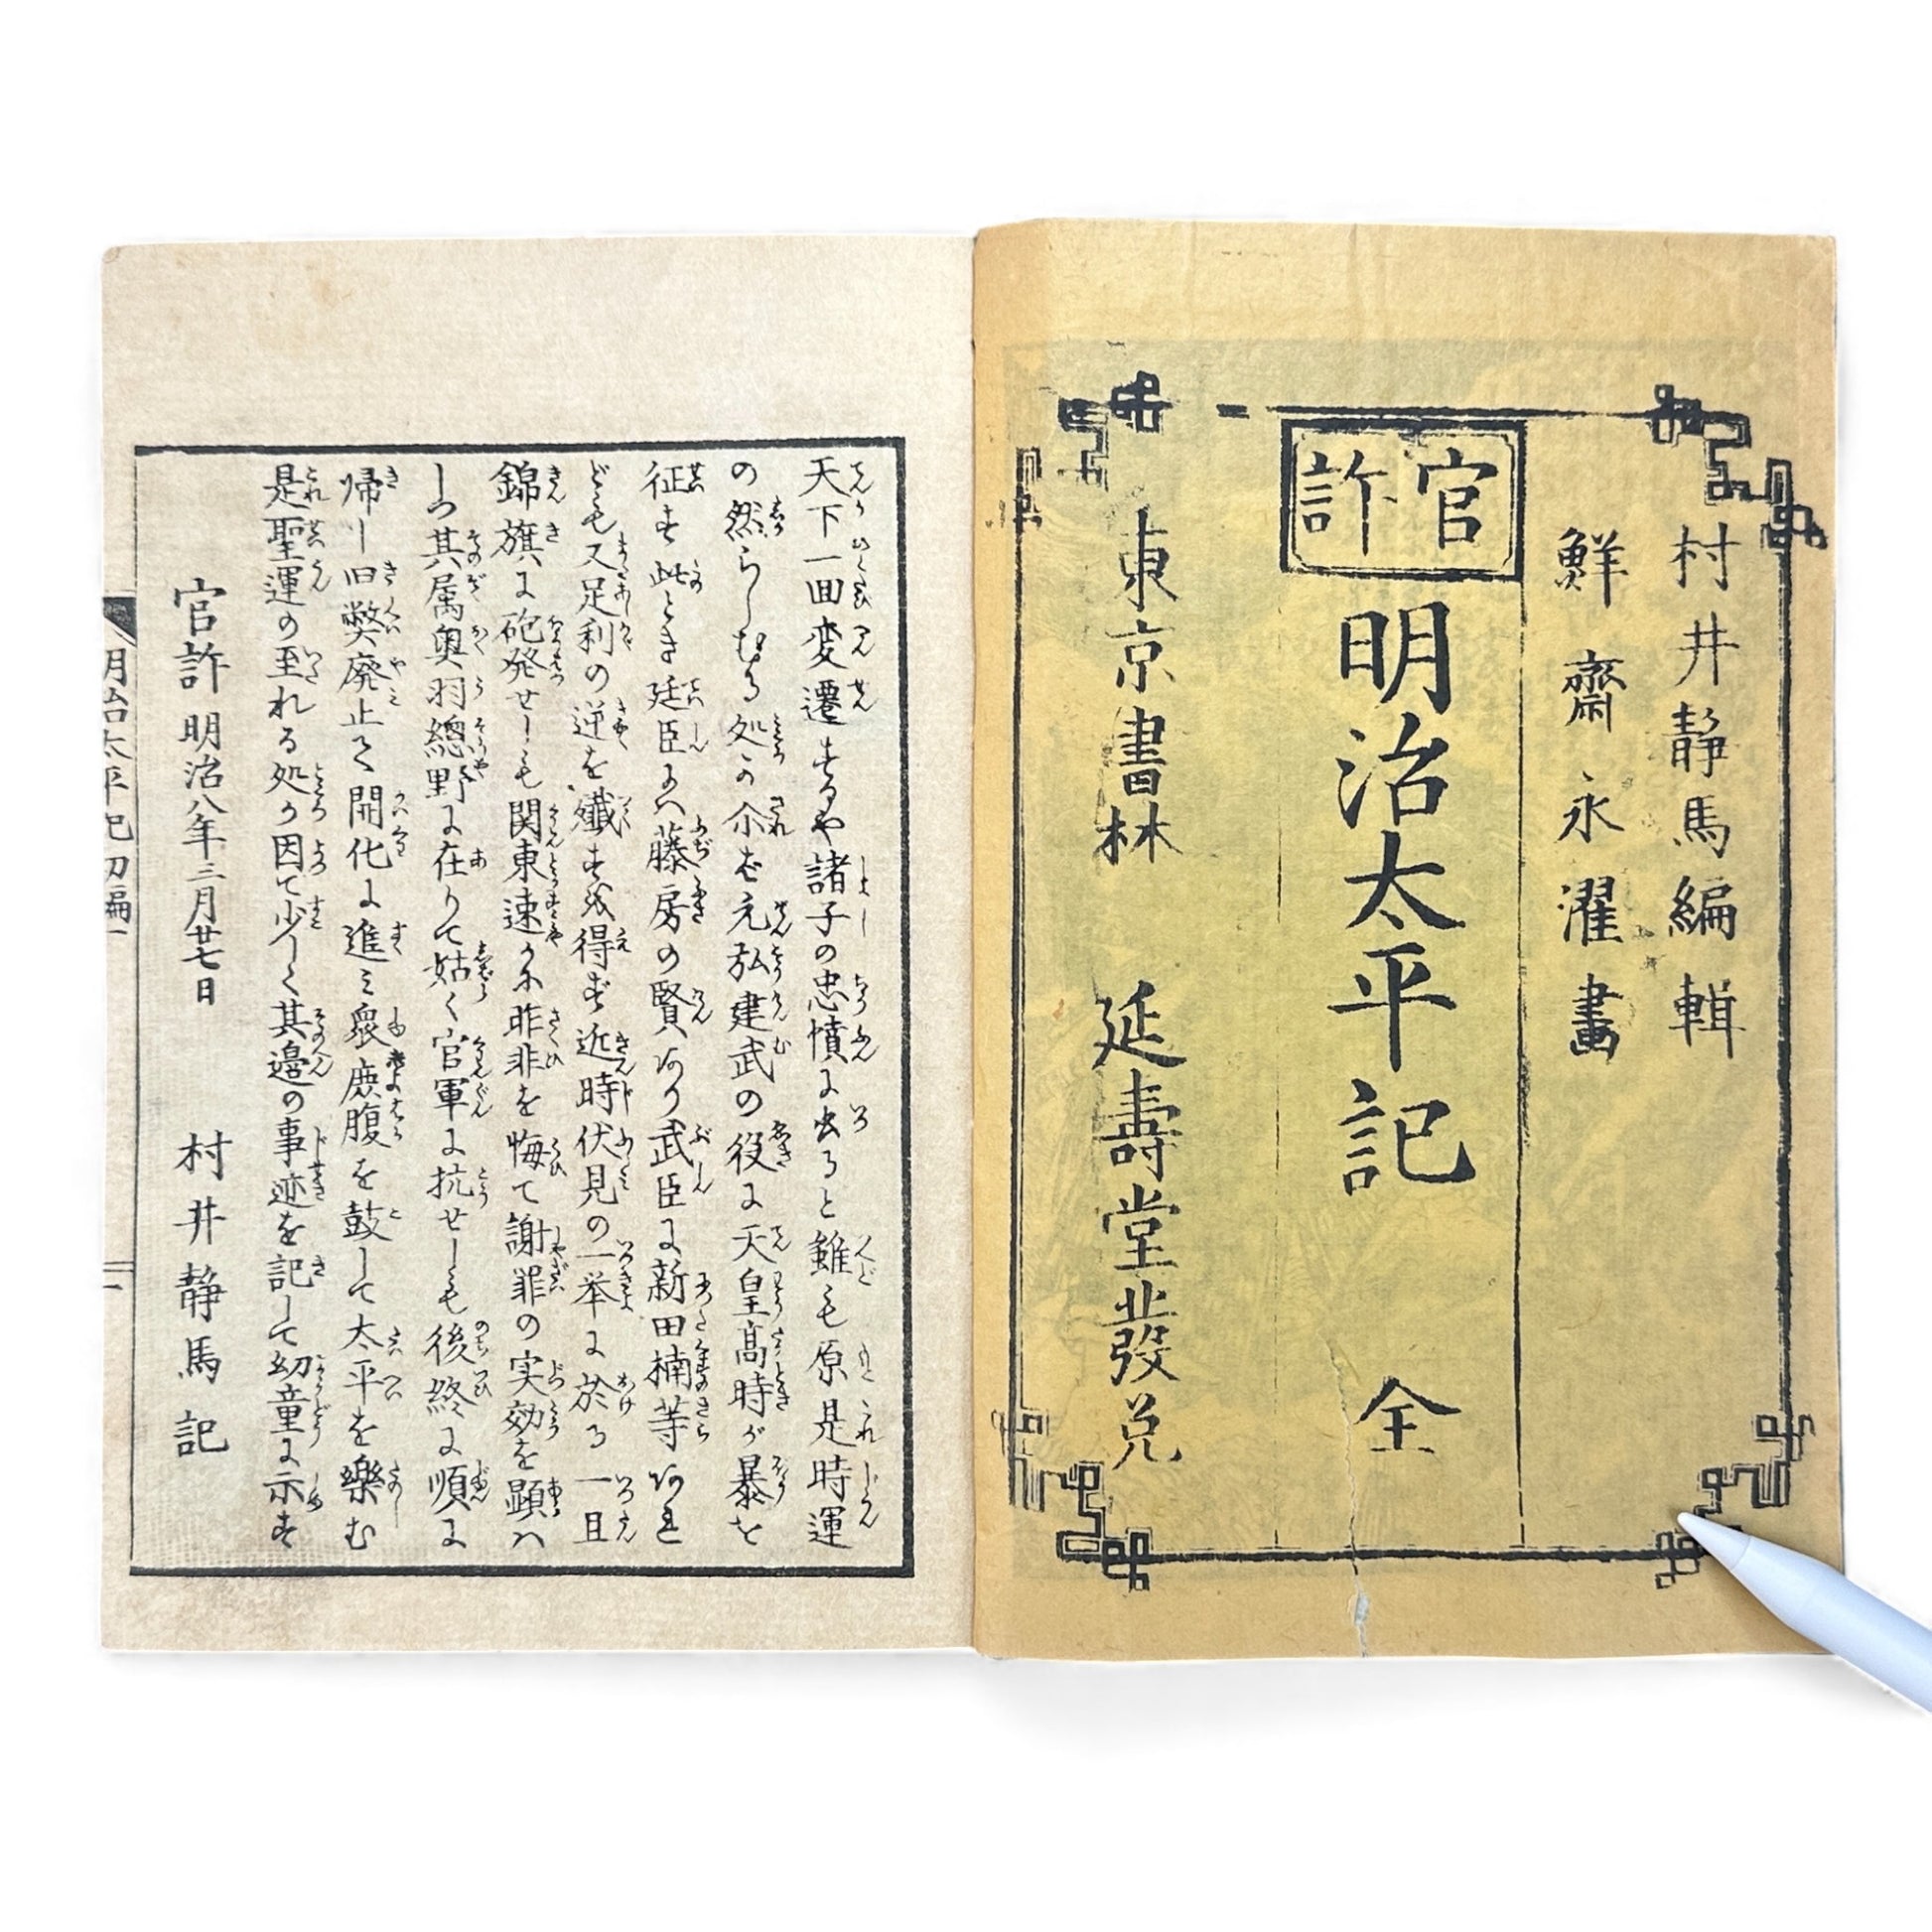 官許
村井静馬編輯
鮮齋永濯畫
明治太平記 全
東京書林 延壽堂發兌
天下一回変遷するや諸子の忠憤に出ると雖も原是時運
の然らしむる処か尓ば元弘建武の役に天皇高時が暴を
征す此とき廷臣には藤房の賢あり武臣に新田楠等あれ
ども又足利の逆を殲すを得ず近時伏見の一挙に於る一旦
錦旗に砲発せしも関東速かに昨非を悔て謝罪の実効を顕ハ
しつ其属奥羽總野に在りて姑く官軍に抗せしも後終に順に
帰し旧弊廃止て開化に進ミ衆庶腹を鼓して太平を樂む
是聖運の至れる処か因て少しく其邉の事迹を記して幼童に示す
官許 明治八年三月廿七日 村井静馬記
明治太平記初編一